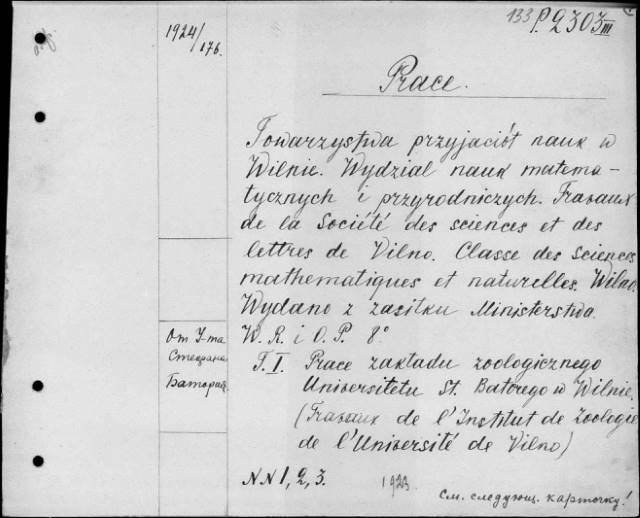 1924/176.
133 P.2303III
Prace.
Towarzystwa przyjaciół nauk w
Wilnie. Wydział nauk matema-
tycznych i przyrodniczych. Travaux
de la Société des sciences et des
lettres de Vilno. Classe des sciences
mathematiques et naturelles. Wilno.
Wydano z zasiłku Ministerstwa.
W. R. i O. P. 8°
От У-та
Стефана
Батория.
T. I. Prace zakładu zoologicznego
Uniwersitetu St. Batorego w Wilnie.
(Travaux de l'Institut de Zoologie
de l'Université de Vilno)
NN 1, 2, 3. 1923
См. следующ. карточку!